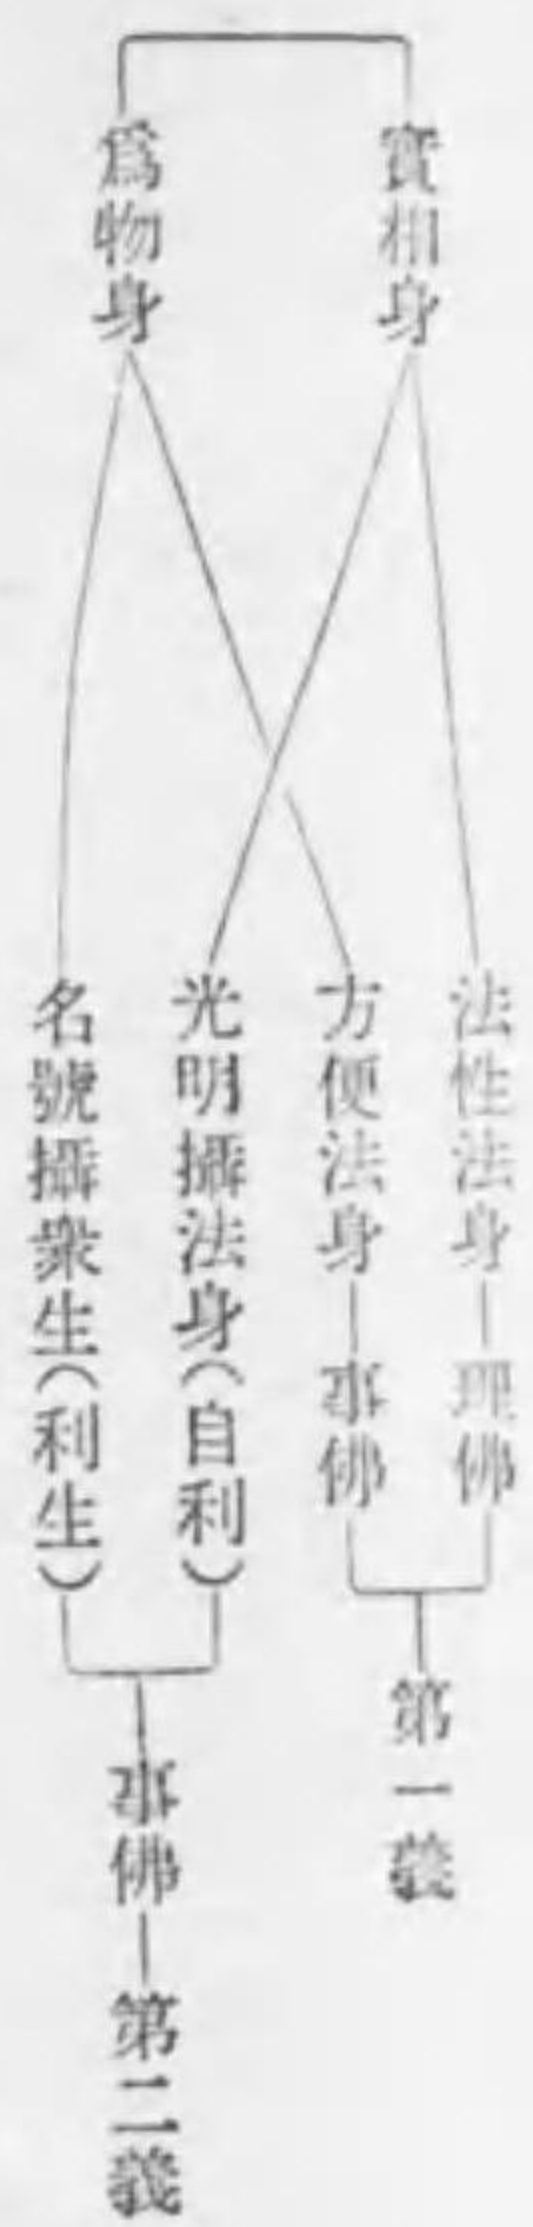 實相身
爲物身
法性法身—理佛
方便法身—事佛
第一義
光明攝法身(自利)
名號攝衆生(利生)
事佛—第二義